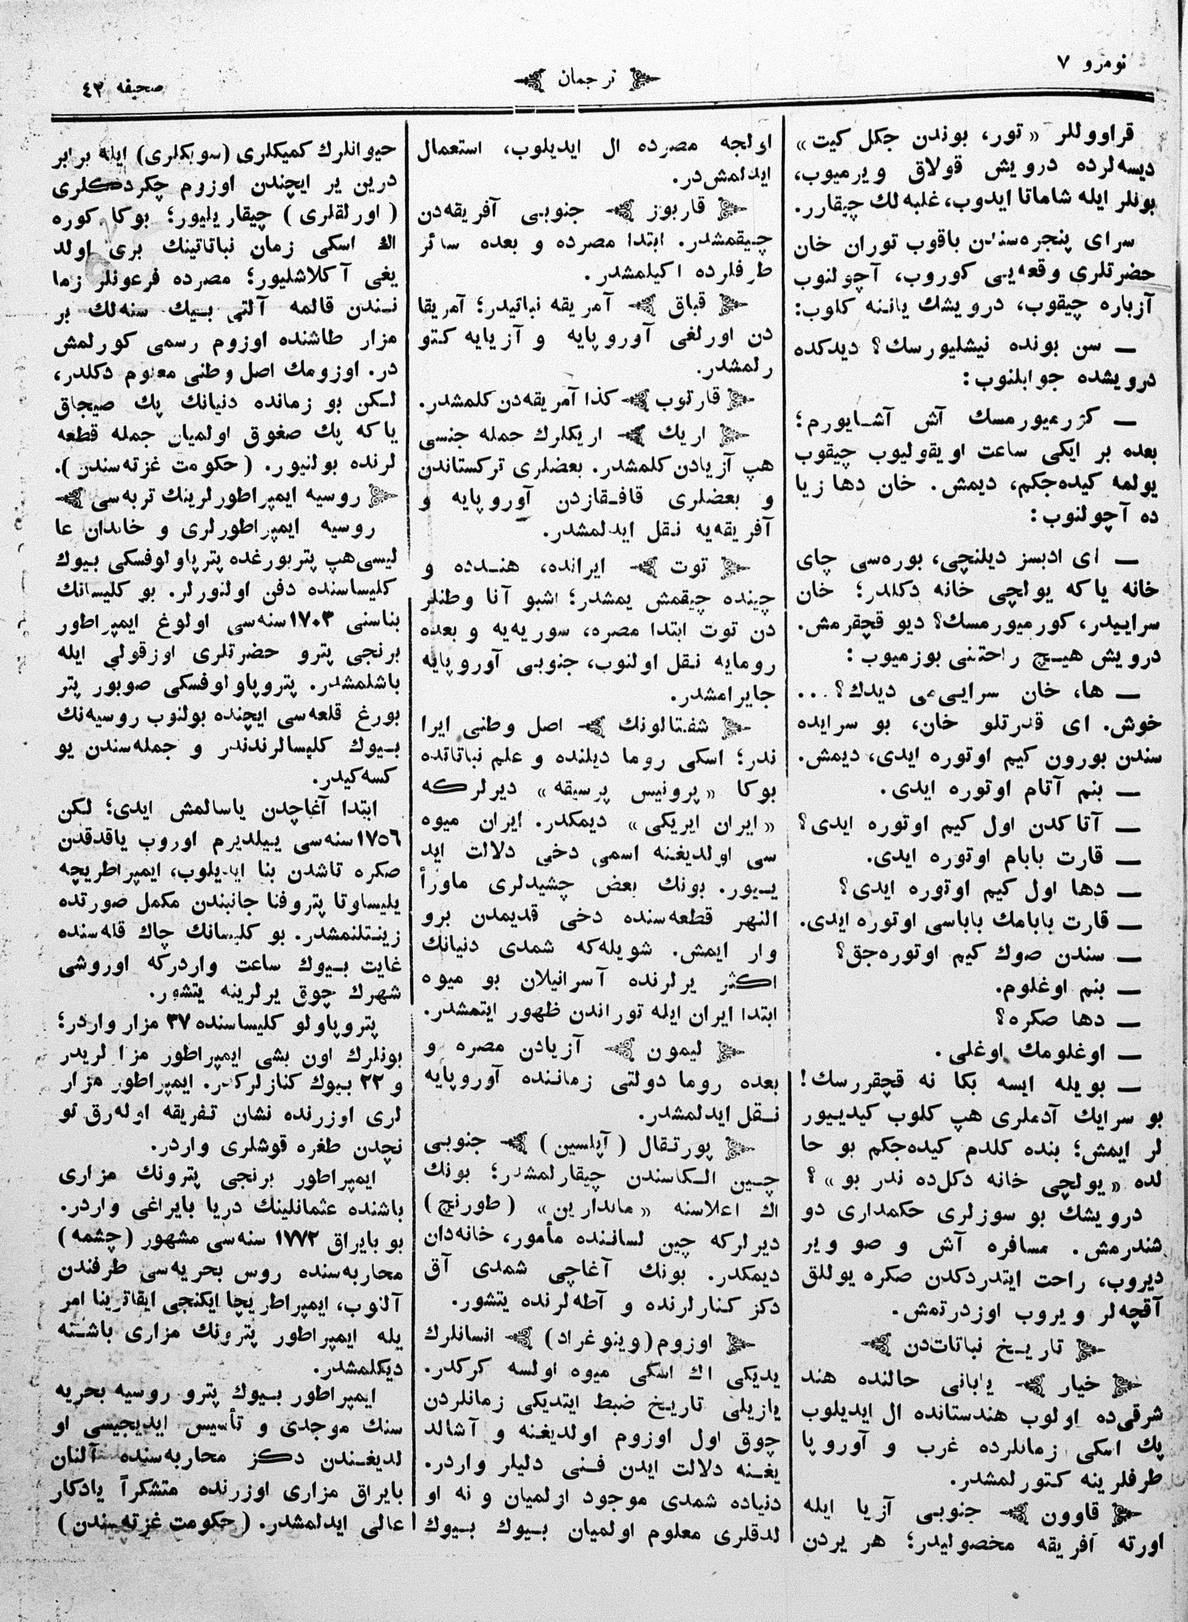 نومرو ۷
ترجمان
صحیفه ٤٣
قراووللر «تور، بوندن چكل كیت»
دیسه‌لرده درویش قولاق ویرمیوب،
بونلر ایله شاماتا ایدوب، غلبه‌لك چیقارر.
سرای پنجره‌سندن باقوب توران خان
حضرتلری وقعه‌یی كوروب، آچولنوب
آزباره چیقوب، درویشك یاننه كلوب:
— سن بونده نیشلیورسك؟ دیدكده
درویشده جوابلنوب:
— كورمیورمسك آش آشایورم؛
بعده بر ایكی ساعت اویقولیوب چیقوب
یولمه كیده‌جكم، دیمش. خان دها زیا
ده آچولنوب:
— ای ادبسز دیلنچی، بوره‌سی چای
خانه یاكه یولچی خانه دكلدر؛ خان
سراییدر، كورمیورمسك؟ دیو قچقرمش.
درویش هیچ راحتنی بوزمیوب:
— ها، خان سراییمی دیدك؟...
خوش. ای قدرتلو خان، بو سرایده
سندن بورون كیم اوتوره ایدی، دیمش.
— بنم آتام اوتوره ایدی.
— آتاكدن اول كیم اوتوره ایدی؟
— قارت بابام اوتوره ایدی.
— دها اول كیم اوتوره ایدی؟
— قارت بابامك باباسی اوتوره ایدی.
— سندن صوك كیم اوتوره‌جق؟
— بنم اوغلوم.
— دها صكره؟
— اوغلومك اوغلی.
— بویله ایسه بكا نه قچقررسك!
بو سرایك آدملری هپ كلوب كیدییور
لر ایمش؛ بنده كلدم كیده‌جكم بو حا
لده «یولچی خانه دكل‌ده ندر بو»؟
درویشك بو سوزلری حكمداری دو
شندرمش. مسافره آش و صو ویر
دیروب، راحت ایتدردكدن صكره یوللق
آقچه‌لر ویروب اوزدرتمش.
تاریخ نباتات‌دن
خیار یابانی حالنده هند
شرقی‌ده اولوب هندستانده ال ایدیلوب
پك اسكی زمانلرده غرب و آوروپا
طرفلرینه كتورلمشدر.
قاوون جنوبی آزیا ایله
اورته آفریقه محصولیدر؛ هر یردن
اولجه مصرده ال ایدیلوب، استعمال
ایدلمش‌در.
قاربوز جنوبی آفریقه‌دن
چیقمشدر. ابتدا مصرده و بعده سائر
طرفلرده اكیلمشدر.
قباق آمریقه نباتیدر؛ آمریقا
دن اورلغی آوروپایه و آزیایه كتو
رلمشدر.
قارتوب كذا آمریقه‌دن كلمشدر.
اریك اریكلرك جمله جنسی
هپ آزیادن كلمشدر. بعضلری تركستاندن
و بعضلری قافقازدن آوروپایه و
آفریقه‌یه نقل ایدلمشدر.
توت ایرانده، هندده و
چینده چیقمش یمشدر؛ اشبو آنا وطنلر
دن توت ابتدا مصره، سوریه‌یه و بعده
رومایه نقل اولنوب، جنوبی آوروپایه
جایرامشدر.
شفتالونك اصل وطنی ایرا
ندر؛ اسكی روما دیلنده و علم نباتاتده
بوكا «پرونیس پرسیقه» دیرلركه
«ایران ایریكی» دیمكدر. ایران میوه
سی اولدیغنه اسمی دخی دلالت اید
یور. بونك بعض چشیدلری ماورأ
النهر قطعه‌سنده دخی قدیمدن برو
وار ایمش. شویله‌كه شمدی دنیانك
اكثر یرلرنده آسرانیلان بو میوه
ابتدا ایران ایله توراندن ظهور ایتمشدر.
لیمون آزیادن مصره و
بعده روما دولتی زماننده آوروپایه
نقل ایدلمشدر.
پورتقال (آپلسین) جنوبی
چین الكاسندن چیقارلمشدر؛ بونك
اك اعلاسنه «ماندارین» (طورنچ)
دیرلركه چین لساننده مأمور، خانه‌دان
دیمكدر. بونك آغاچی شمدی آق
دكز كنارلرنده و آطه‌لرنده یتشور.
اوزوم (وینوغراد) انسانلرك
یدیكی اك اسكی میوه اولسه كركدر.
یازیلی تاریخ ضبط ایتدیكی زمانلردن
چوق اول اوزوم اولدیغنه و آشالد
یغنه دلالت ایدن فنی دلیلر واردر.
دنیاده شمدی موجود اولمیان و نه او
لدقلری معلوم اولمیان بیوك بیوك
حیوانلرك كمیكلری (سویكلری) ایله برابر
درین یر ایچندن اوزوم چكردكلری
(اورلقلری) چیقاریلیور؛ بوكا كوره
اك اسكی زمان نباتاتینك بری اولد
یغی آكلاشلیور؛ مصرده فرعونلر زما
نندن قالمه آلتی بیك سنه‌لك بر
مزار طاشنده اوزوم رسمی كورلمش
در. اوزومك اصل وطنی معلوم دكلدر،
لكن بو زمانده دنیانك پك صیجاق
یاكه پك صغوق اولمیان جمله قطعه
لرنده بولنیور. (حكومت غزته‌سندن).
روسیه ایمپراطورلرینك تربه‌سی
روسیه ایمپراطورلری و خاندان عا
لیسی هپ پتربورغده پترپاولوفسكی بیوك
كلیساسنده دفن اولنورلر. بو كلیسانك
بناسنی ۱۷۰۳ سنه‌سی اولوغ ایمپراطور
برنجی پترو حضرتلری اوزقولی ایله
باشلمشدر. پتروپاولوفسكی صوبور پتر
بورغ قلعه‌سی ایچنده بولنوب روسیه‌نك
بیوك كلیسالرندندر و جمله‌سندن یو
كسه‌كیدر.
ابتدا آغاچدن یاسالمش ایدی؛ لكن
۱۷۵٦ سنه‌سی ییلدیرم اوروب یاقدقدن
صكره تاشدن بنا ایدیلوب، ایمپراطریچه
یلیساوتا پتروفنا جانبندن مكمل صورتده
زینتلنمشدر. بو كلیسانك چاك قله‌سنده
غایت بیوك ساعت واردركه اوروشی
شهرك چوق یرلرینه یتشور.
پتروپاولو كلیساسنده ۳۷ مزار واردر؛
بونلرك اون بشی ایمپراطور مزارلریدر
و ۲۲ بیوك كنازلركدر. ایمپراطور مزار
لری اوزرنده نشان تفریقه اوله‌رق تو
نچدن طغره قوشلری واردر.
ایمپراطور برنجی پترونك مزاری
باشنده عثمانلینك دریا بایراغی واردر.
بو بایراق ۱۷۷۲ سنه‌سی مشهور (چشمه)
محاربه‌سنده روس بحریه‌سی طرفندن
آلنوب، ایمپراطریچا ایكنجی ایقاترینا امر
یله ایمپراطور پترونك مزاری باشنه
دیكلمشدر.
ایمپراطور بیوك پترو روسیه بحریه
سنك موجدی و تأسیس ایدیجیسی او
لدیغندن دكز محاربه‌سنده آلنان
بایراق مزاری اوزرنده متشكراً یادكار
عالی ایدلمشدر. (حكومت غزته‌سندن)